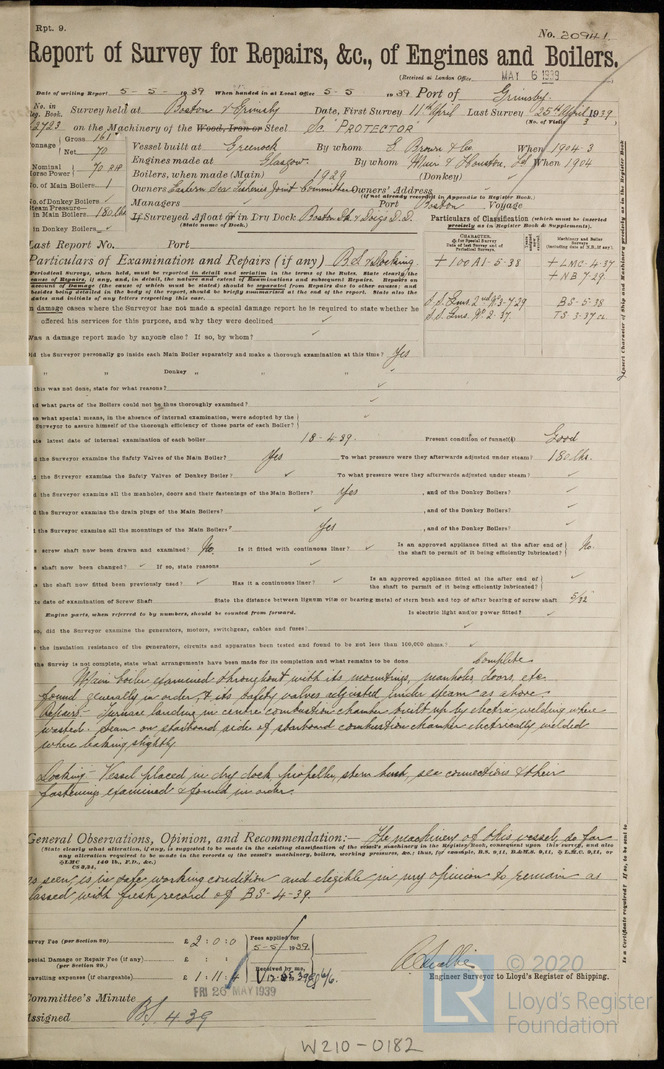 Rpt. 9.
No. 20941
Report of Survey for Repairs, &c., of Engines and Boilers.
(Received at London Office MAY 6 1939
Date of writing Report 5-5-1939 When handed in at Local Office 5-5-1939 Port of Grimsby.
No. in Reg. Book. Survey held at Boston & Grimsby Date, First Survey 11th April Last Survey 25th April 1939
(No. of Visits 3)
2723 on the Machinery of the Wood, Iron or Steel Sc "PROTECTOR"
Tonnage Gross 161
Net 70
Vessel built at Greenock By whom G. Brown & Co. When 1904 3
Engines made at Glasgow. By whom Muir & Houston, Ld When 1904
Nominal Horse Power 70 NHP
Boilers, when made (Main) 1929 (Donkey)
No. of Main Boilers 1
Owners Eastern Sea Fisheries Joint Committee Owners' Address
(if not already recorded in Appendix to Register Book.)
No. of Donkey Boilers
Managers Port Boston Voyage
Steam Pressure in Main Boilers 180 lbs
If Surveyed Afloat or in Dry Dock Boston Dk & Doig's D.D.
(State name of Dock.)
in Donkey Boilers
Particulars of Classification (which must be inserted precisely as in Register Book & Supplements).
Last Report No. Port
Particulars of Examination and Repairs (if any) B.S. & Docking.
+100A1-5-38 +LMC-4-37
+NB7-29
S.S. Gms. 2nd No3-7-29 BS-5-38
S.S. Gms. No 2-37. TS-3-37 CL
Periodical Surveys, when held, must be reported in detail and seriatim in the terms of the Rules. State clearly the cause of Repairs, if any, and, in detail, the nature and extent of Examinations and subsequent Repairs. Repairs on account of Damage (the cause of which must be stated) should be separated from Repairs due to other causes; and besides being detailed in the body of the report, should be briefly summarised at the end of the report. State also the dates and initials of any letters respecting this case.
In damage cases where the Surveyor has not made a special damage report he is required to state whether he
offered his services for this purpose, and why they were declined
Was a damage report made by anyone else? If so, by whom?
Did the Surveyor personally go inside each Main Boiler separately and make a thorough examination at this time? Yes
" " Donkey " " "
this was not done, state for what reasons?
what parts of the Boilers could not be thus thoroughly examined?
what special means, in the absence of internal examination, were adopted by the Surveyor to assure himself of the thorough efficiency of those parts of each Boiler?
State latest date of internal examination of each boiler 18-4-39. Present condition of funnel(s) Good
Did the Surveyor examine the Safety Valves of the Main Boiler? Yes To what pressure were they afterwards adjusted under steam? 180 lbs.
Did the Surveyor examine the Safety Valves of Donkey Boiler? To what pressure were they afterwards adjusted under steam?
Did the Surveyor examine all the manholes, doors and their fastenings of the Main Boilers? Yes , and of the Donkey Boilers?
Did the Surveyor examine the drain plugs of the Main Boilers? , and of the Donkey Boilers?
Did the Surveyor examine all the mountings of the Main Boilers? Yes , and of the Donkey Boilers?
screw shaft now been drawn and examined? No. Is it fitted with continuous liner? Is an approved appliance fitted at the after end of the shaft to permit of it being efficiently lubricated? No.
shaft now been changed? If so, state reasons
the shaft now fitted been previously used? Has it a continuous liner? Is an approved appliance fitted at the after end of the shaft to permit of it being efficiently lubricated?
date of examination of Screw Shaft State the distance between lignum vitæ or bearing metal of stern bush and top of after bearing of screw shaft 5/32
Engine parts, when referred to by numbers, should be counted from forward. Is electric light and/or power fitted?
so, did the Surveyor examine the generators, motors, switchgear, cables and fuses?
the insulation resistance of the generators, circuits and apparatus been tested and found to be not less than 100,000 ohms?
the Survey is not complete, state what arrangements have been made for its completion and what remains to be done Complete
Main boiler examined throughout with its mountings, manholes, doors, etc.
found generally in order, & its safety valves adjusted under steam as above.
Repairs:- Furnace landing in centre combustion chamber built up by electric welding where
wasted. Seam on starboard side of starboard combustion chamber electrically welded
where leaking slightly
Docking:- Vessel placed in dry dock, propeller, stern bush, sea connections & their
fastenings examined & found in order.
General Observations, Opinion, and Recommendation:— The machinery of this vessel, so far
(State clearly what alteration, if any, is suggested to be made in the existing classification of the vessel's machinery in the Register Book, consequent upon this survey, and also any alteration required to be made in the records of the vessel's machinery, boilers, working pressures, &c.; thus, for example, B.S. 9,11, B.&M.S. 9,11, or L.M.C. 9,11, or
as seen, is in safe working condition and eligible in my opinion to remain as
classed with fresh record of B.S-4-39.
Survey Fee (per Section 29) £ 2:0:0 Fees applied for 5-5-1939.
Special Damage or Repair Fee (if any) £ : :
(per Section 29.)
Travelling expenses (if chargeable). £ 1:11:4 Received by me,
Engineer Surveyor to Lloyd's Register of Shipping.
Committee's Minute FRI 26 MAY 1939
Assigned BS 4.39
© 2020
LR
Lloyd's Register
Foundation
W210-0182
Insert Character of Ship and Machinery precisely as in the Register Book
Is a Certificate required? If so, to be sent to